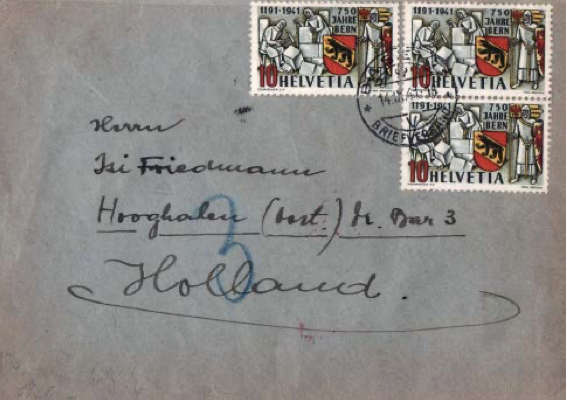 1191-1941 750 JAHRE BERN
10 HELVETIA
1191-1941 750 JAHRE BERN
10 HELVETIA
1191-1941 750 JAHRE BERN
10 HELVETIA
BRIEFVERSAND
Herrn
Isi Friedmann
Hooghalen (oost.) Dr. Bar 3
Holland.
3